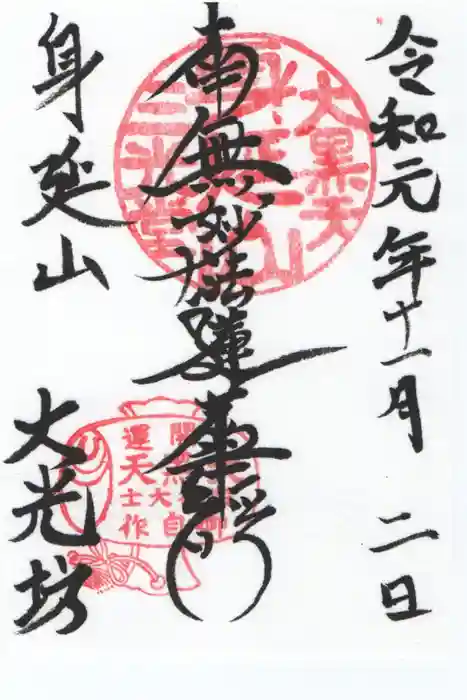 令和元年十一月二日
南無妙法蓮華経
身延山
大光坊
大黒天
身延山
三光堂
開
運
天
大
士
作
自